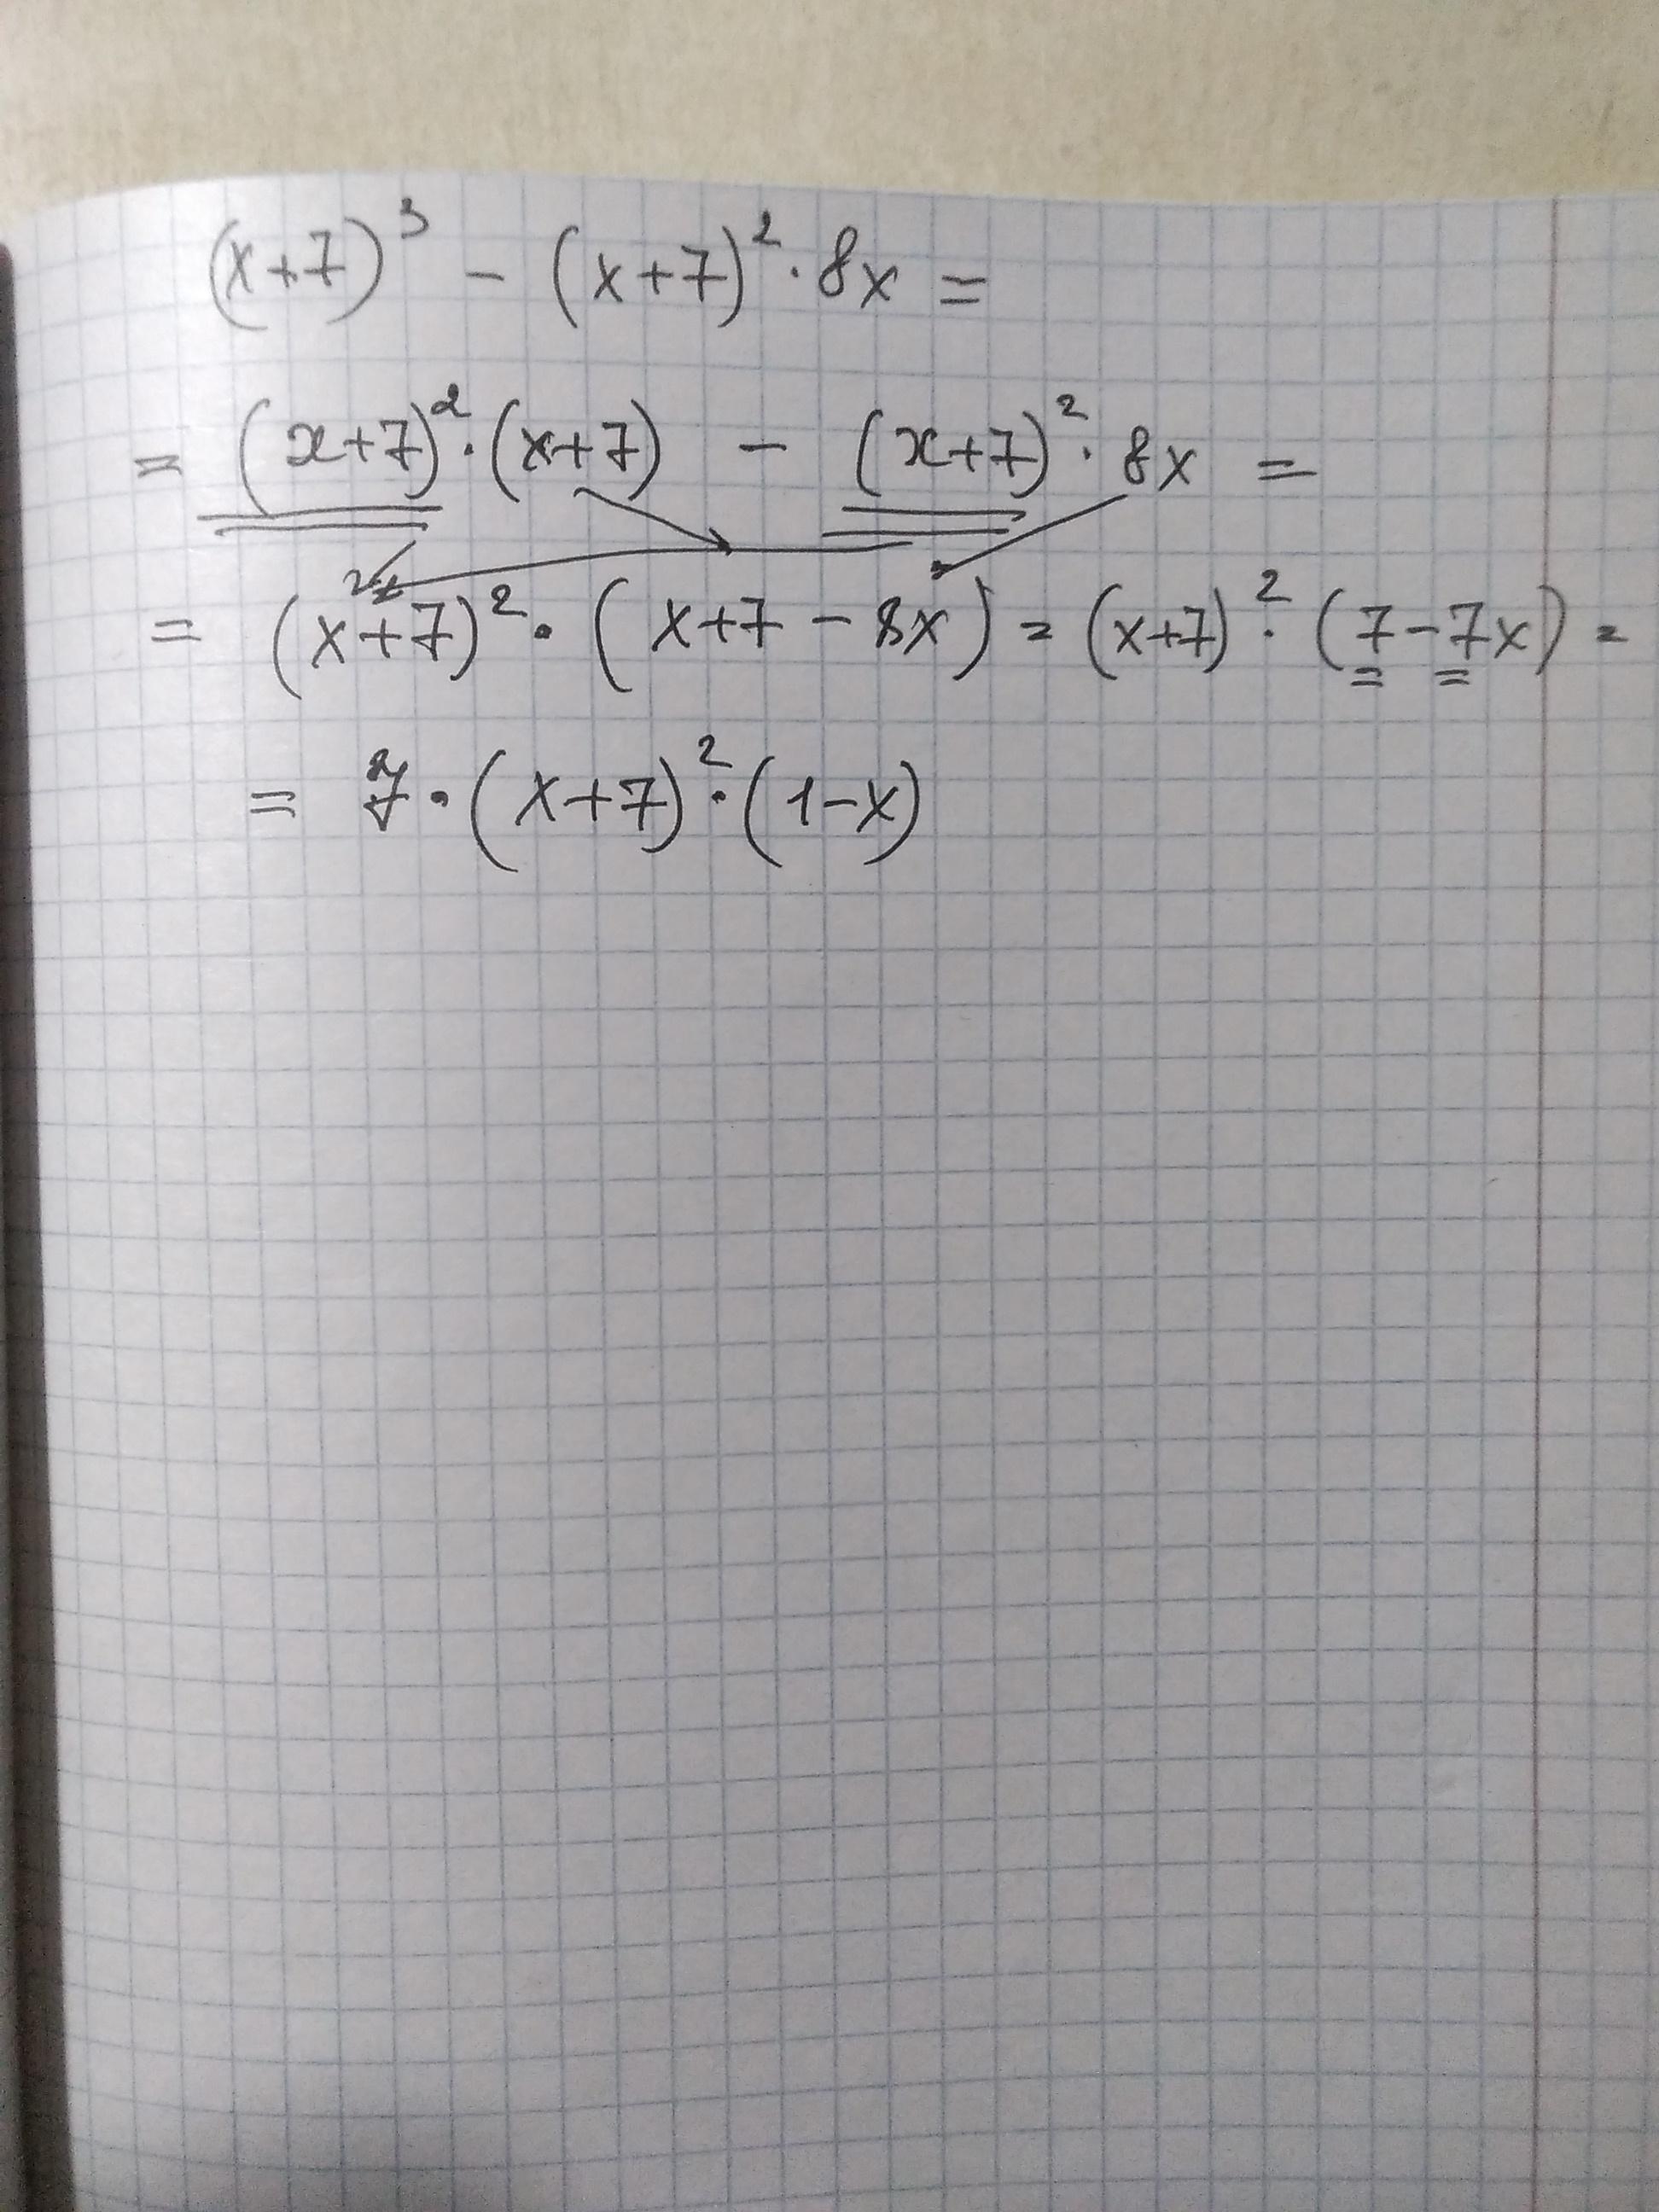 (x+7)³ - (x+7)² · 8x =
= (x+7)² · (x+7) - (x+7)² · 8x =
= (x+7)² · (x+7-8x) = (x+7)² · (7-7x) =
= 7 · (x+7)² · (1-x)